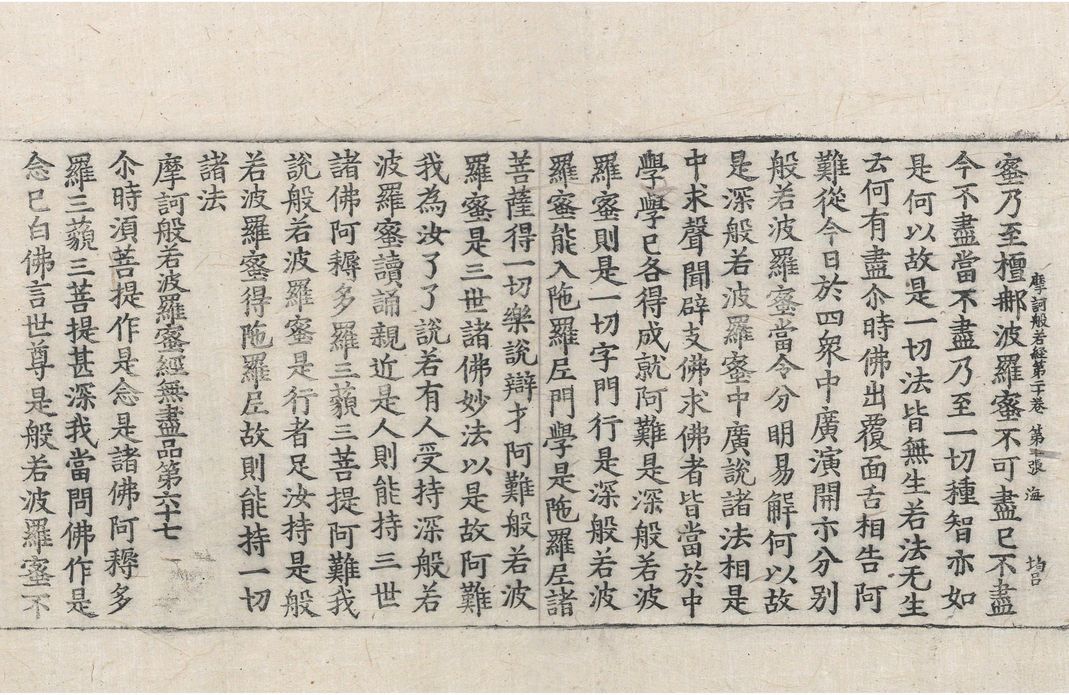 摩訶般若経第二十卷 第十張 海
蜜乃至檀那波羅蜜不可盡已不盡
今不盡當不盡乃至一切種智亦如
是何以故是一切法皆無生若法无生
云何有盡尒時佛出覆面舌相告阿
難從今日於四衆中廣演開示分別
般若波羅蜜當令分明易解何以故
是深般若波羅蜜中廣說諸法相是
中求聲聞辟支佛求佛者皆當於中
學學已各得成就阿難是深般若波
羅蜜則是一切字門行是深般若波
羅蜜能入陁羅尼門學是陁羅尼諸
菩薩得一切樂說辯才阿難般若波
羅蜜是三世諸佛妙法以是故阿難
我為汝了了說若有人受持深般若
波羅蜜讀誦親近是人則能持三世
諸佛阿耨多羅三藐三菩提阿難我
說般若波羅蜜是行者足汝持是般
若波羅蜜得陁羅尼故則能持一切
諸法
摩訶般若波羅蜜經無盡品第六十七
尒時湏菩提作是念是諸佛阿耨多
羅三藐三菩提甚深我當問佛作是
念已白佛言世尊是般若波羅蜜不